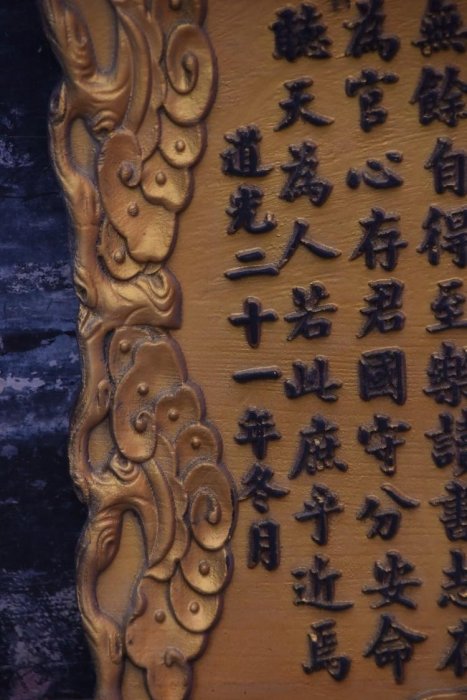 無餘自得至樂讀書志在
為官心存君國守分安命
聽天為人若此庶乎近焉
道光二十一年冬月